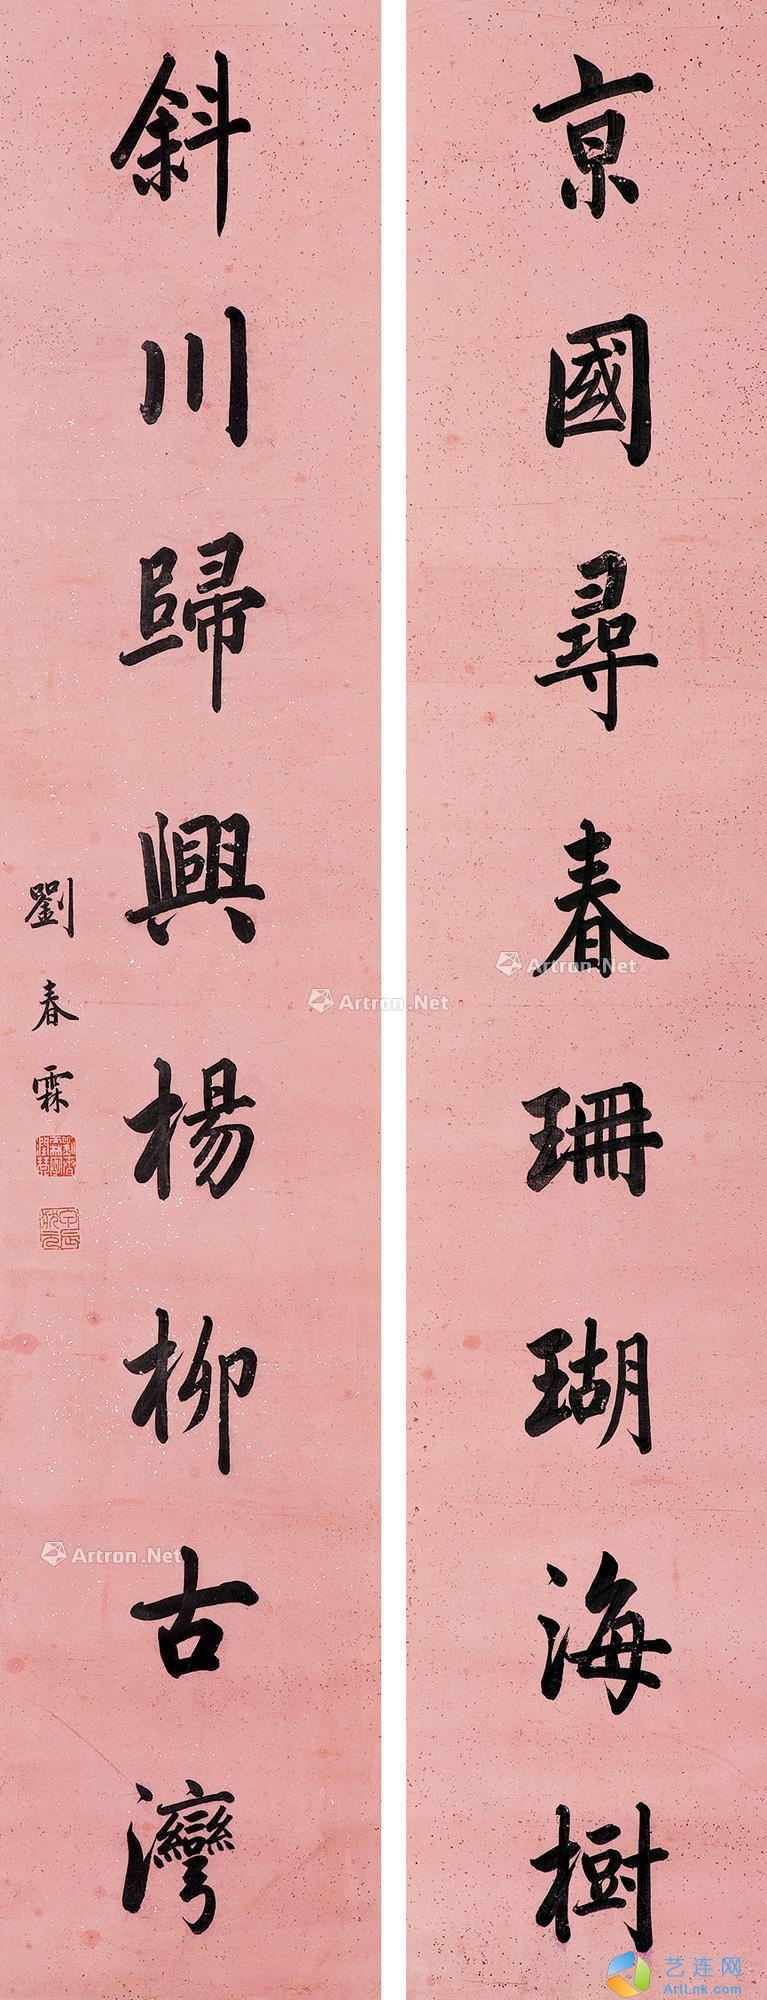 京國尋春珊瑚海樹
斜川歸興楊柳古灣
劉春霖
Artron.Net
Artron.Net
Artron.Net
艺连网
ArtLnk.com